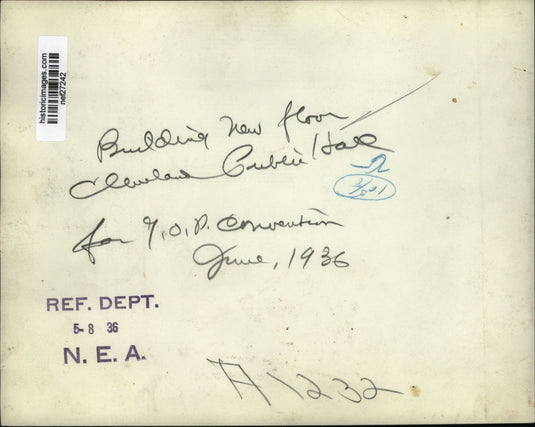 historicimages.com
nef27242
Building new floor
Cleveland Public Hall
for G.O.P. Convention
June, 1936
REF. DEPT.
5-8 36
N. E. A.
A1232